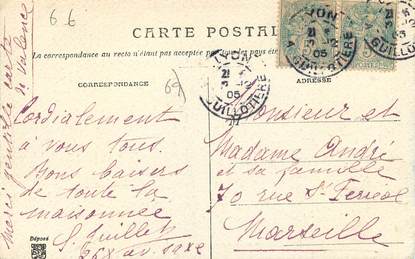 6 6
CARTE POSTALE
La correspondance au recto n'étant pas acceptée par tous les pays
CORRESPONDANCE
ADRESSE
69
LYON
GUILLOTIERE
05
LYON
GUILLOTIERE
05
GUILLOTIERE
Cordialement
à vous tous.
Bons baisers
de toute la
maisonnée
av. Saxe
Merci gentille carte
de Valence
Monsieur et
Madame André
et sa famille
70 rue St Ferreol
Marseille
Déposé